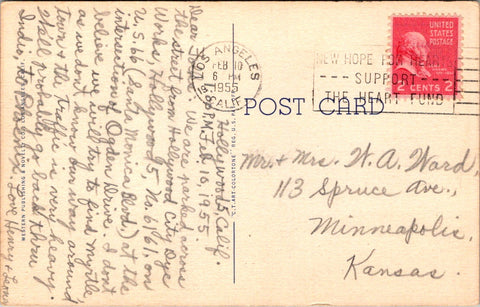 Hollywood, Calif.
1:08 P.M. Feb. 10, 1955
Dear
We are parked across
the street from Hollywood City Dye
Works, Hollywood, No. 6161, on
U.S. 66 (Santa Monica Blvd.) at the
intersection of Ogden Drive. I dont
believe we will try to find Myrtle
as we dont know our way around
town & the traffic is very heavy.
shall probably go back thru
Indio to
Love Henry & Leona
LOS ANGELES
FEB 10
6 PM
1955
CALIF.
NEW HOPE FOR HEARTS
SUPPORT
THE HEART FUND
UNITED
STATES
POSTAGE
2 CENTS 2
POST CARD
C.T. ART-COLORTONE REG. U.S. PAT. OFF.
Mr. & Mrs. W. A. Ward,
113 Spruce Ave.,
Minneapolis,
Kansas.